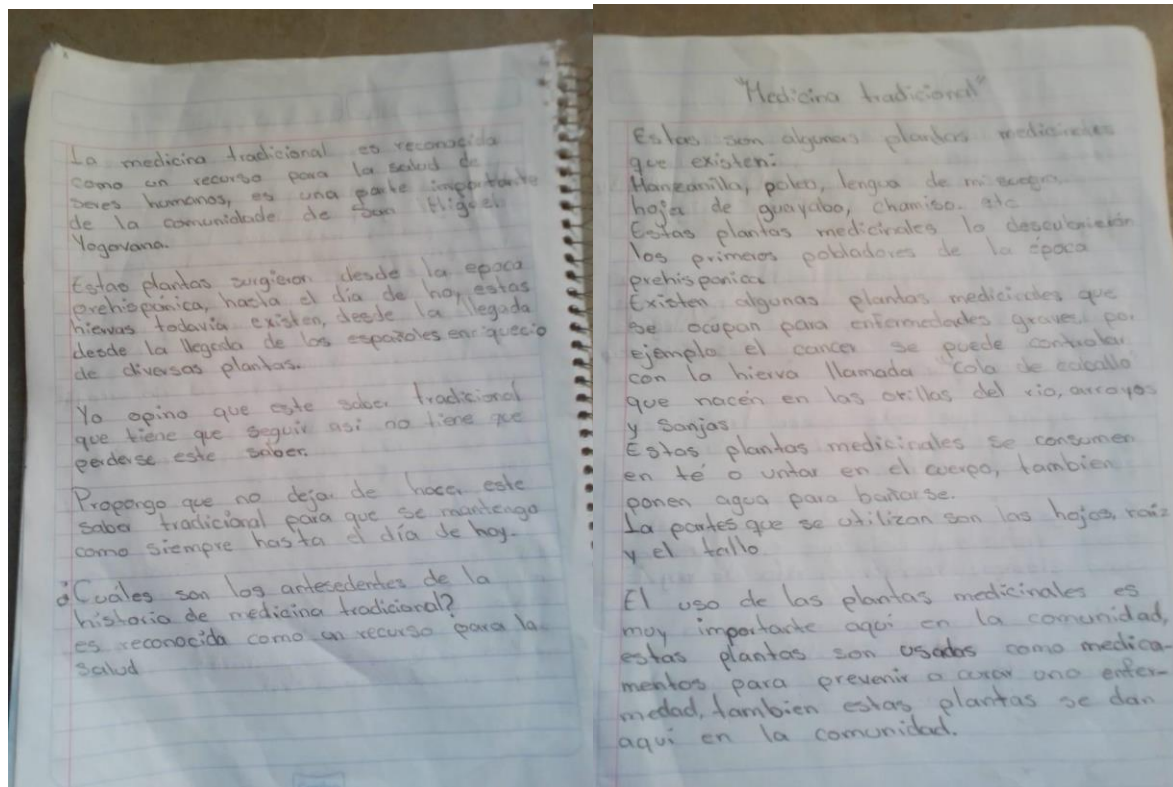 La medicina tradicional es reconocida
como un recurso para la salud de
seres humanos, es una parte importante
de la comunidade de San Miguel
Yogovana.
Estas plantas surgieron desde la epoca
prehispánica, hasta el día de ho, estas
hiervas todavia existen, desde la llegada
desde la llegada de los españoles enriquecio
de diversas plantas.
Yo opino que este saber tradicional
que tiene que seguir asi no tiene que
perderse este saber.
Propongo que no dejar de hacer este
saber tradicional para que se mantengo
como siempre hasta el día de hoy.
¿Cuáles son los antesedentes de la
historia de medicina tradicional?
es reconocida como un recurso para la
salud
"Medicina tradicional"
Estas son algunas plantas medicinales
que existen:
Manzanilla, poleo, lengua de mi suegra,
hoja de guayabo, chamiso. etc
Estas plantas medicinales lo descubrierón
los primeros pobladores de la época
prehispanica
Existen algunas plantas medicinales que
se ocupan para enfermedades graves, por
ejemplo el cancer se puede controlar
con la hierva llamada "cola de caballo"
que nacen en las orillas del rio, arroyos
y sanjas
Estos plantas medicinales se consumen
en té o untar en el cuerpo, tambien
ponen agua para bañarse.
La partes que se utilizan son las hojas, raiz
y el tallo.
El uso de las plantas medicinales es
muy importante aquí en la comunidad,
estas plantas son usadas como medica-
mentos para prevenir o curar una enfer-
medad, tambien estas plantas se dan
aqui en la comunidad.